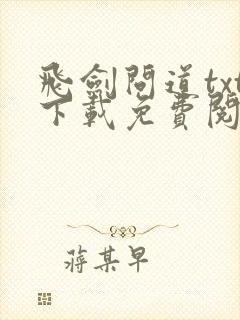 飛劍問道txt
下載免費閱
蔣某早